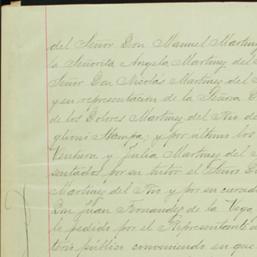 del Señor Don Manuel Martinez
la Señorita Angela Martinez del
Señor Don Nicolás Martinez del
y en representacion de la Señora
de los Dolores Martinez del Rio de
glioni Stampa; y por último los
Ventura y Julia Martinez del
sentados por su tutor el Señor D
Martinez del Rio y por su curador
Don Juan Fernandez de la Vega,
lo pedido por el Representante
torio público conviniendo en que